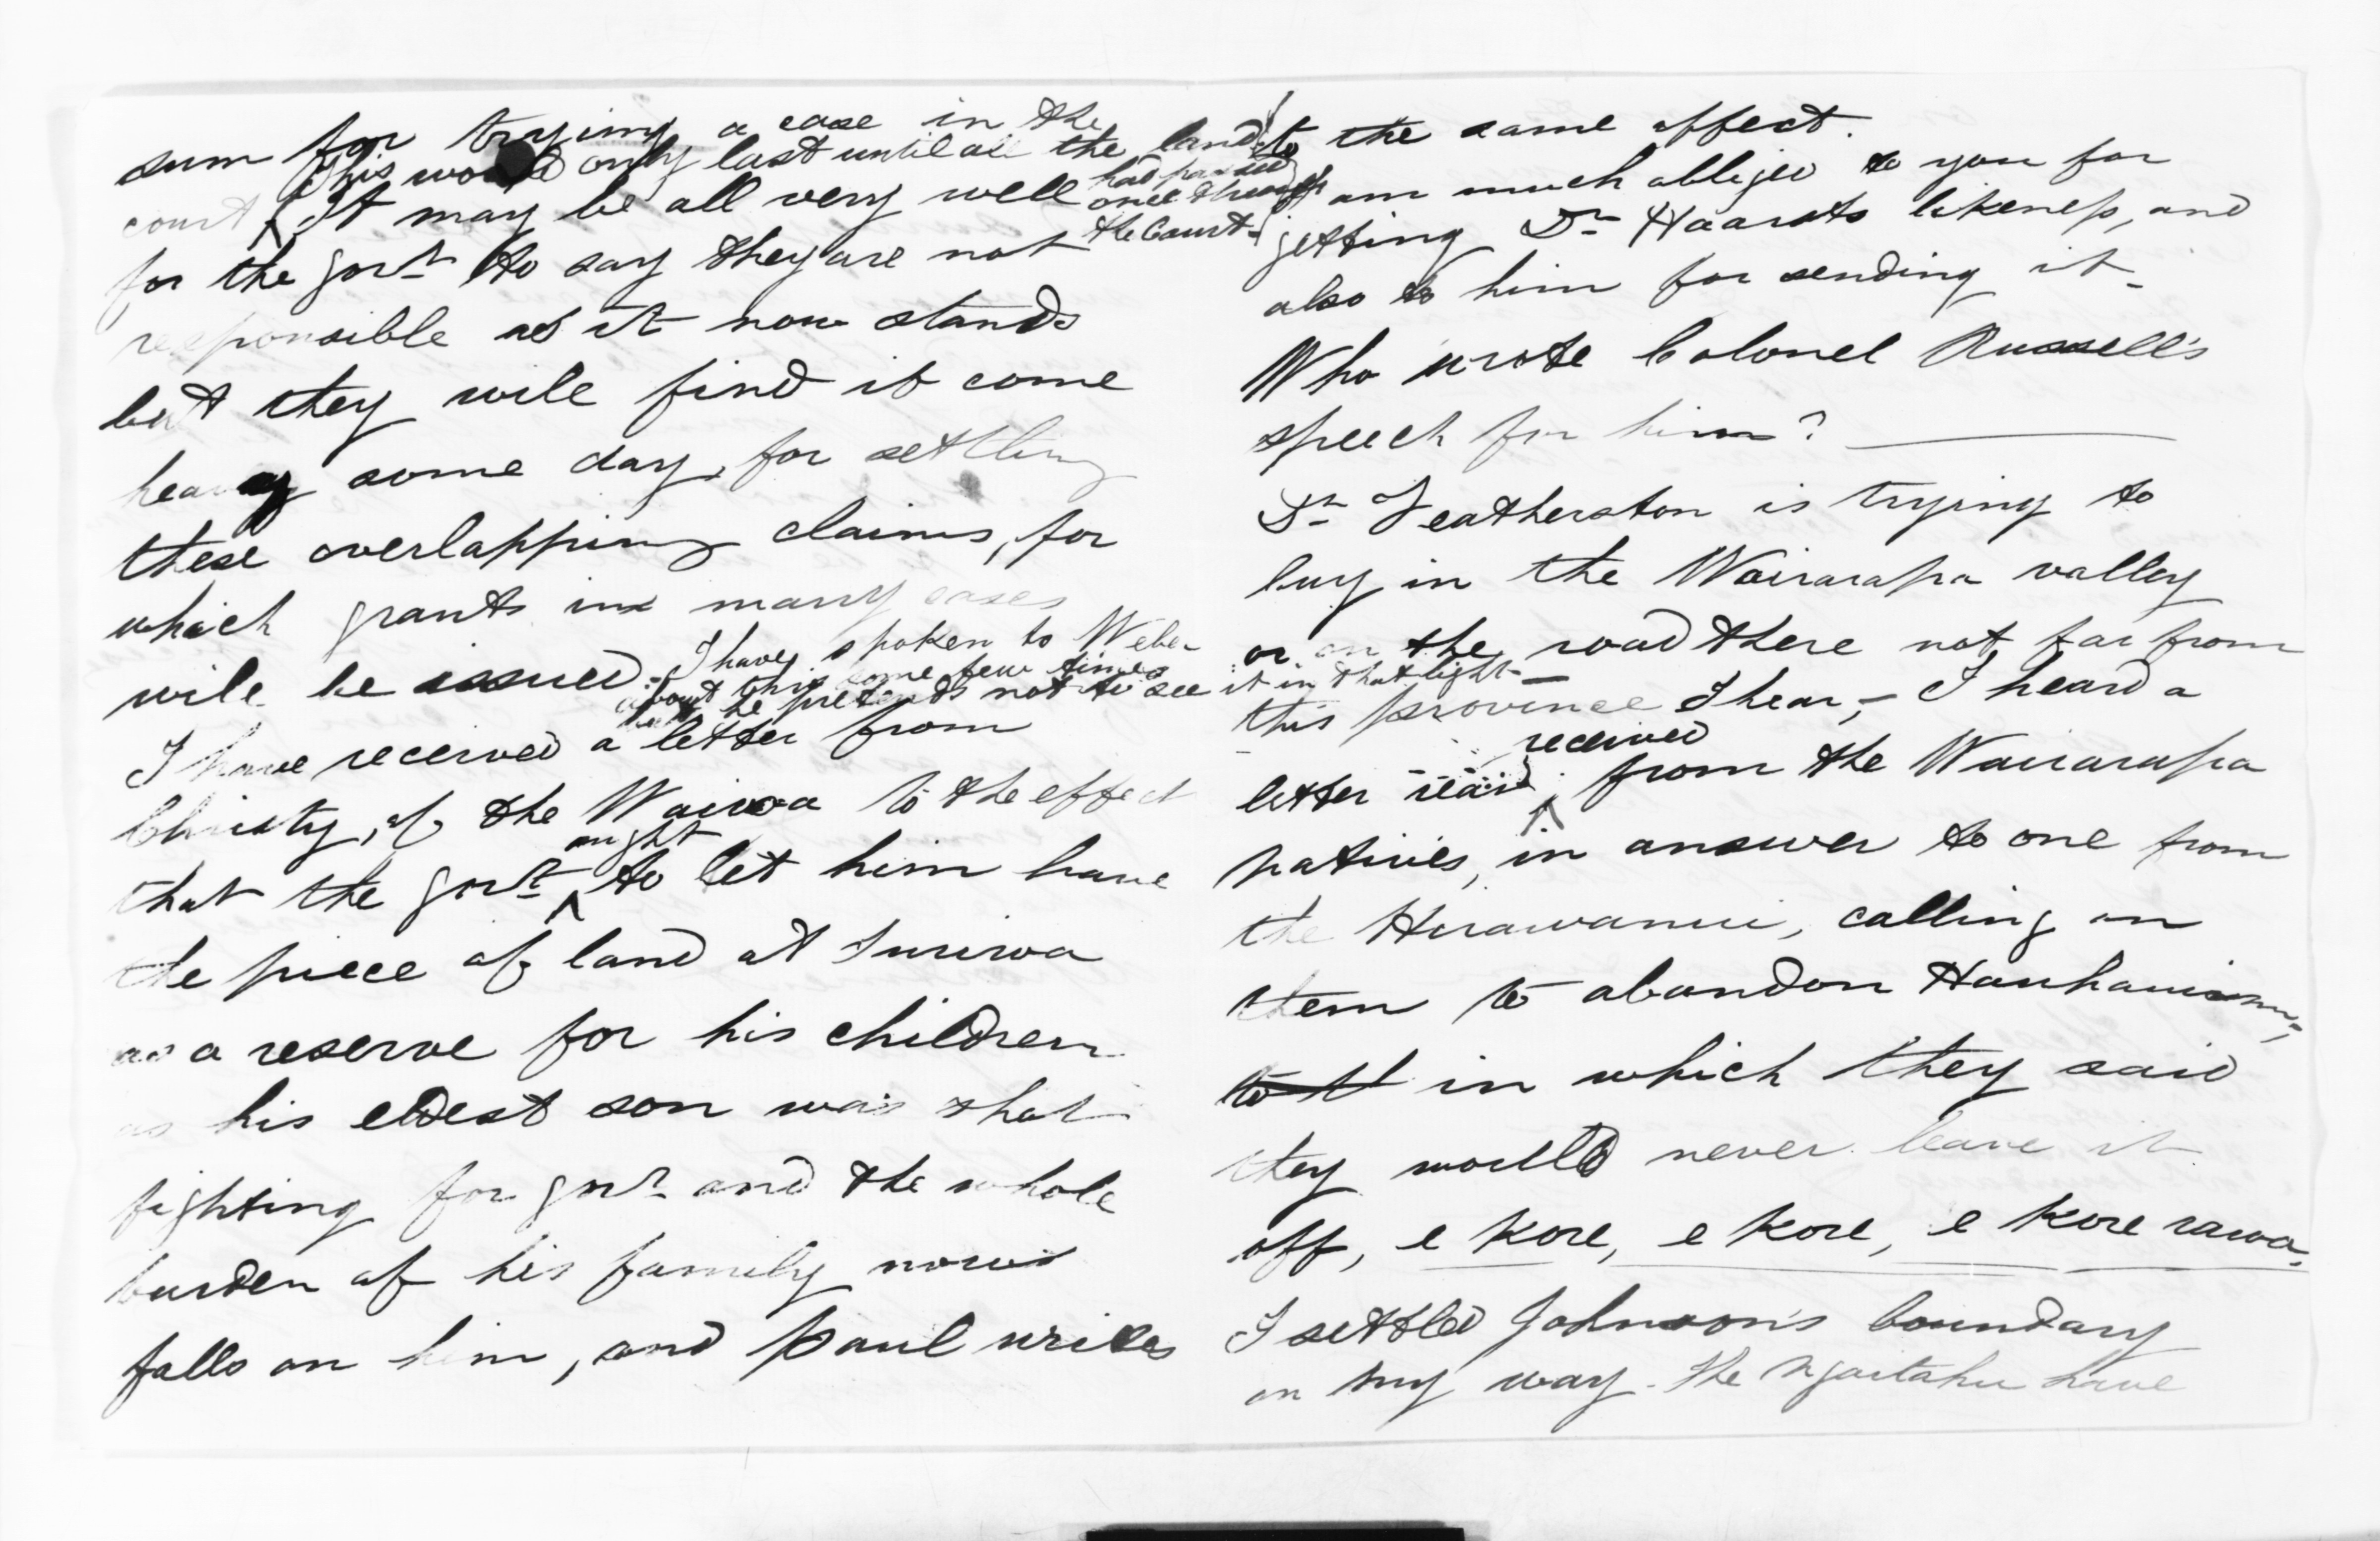 sum for trying a case in the
This would only last until all the land
had passed
once through
the Court.
court ^ It may be all very well
for the govt to say they are not
responsible as it now stands
but they will find it come
heavy some day, for settling
these overlapping claims, for
which grants in many cases
will be issued. I have spoken to Weber
about this some few times
but he pretends not to see it in that light
I have received a letter from
Christy, of the Wairoa to the effect
that the govt ^ought to let him have
the piece of land at Turiroa
as a reserve for his children
as his eldest son was shot
fighting for govt and the whole
burden of his family now
falls on him, and Paul writes
to the same effect.
I am much obliged to you for
getting Dr Haarsts likeness, and
also to him for sending it
Who wrote Colonel Russell's
speech for him?
Dr Featherston is trying to
buy in the Wairarapa valley
or on the road there not far from
this province I hear, - I heard a
letter read ^received from the Wairarapa
natives, in answer to one from
the Hurawanui, calling on
them to abandon Hauhauism,
in which they said
they would never leave it
off, e kore, e kore, e kore rawa.
I settled Johnson's boundary
on my way. The Ngaitahu have